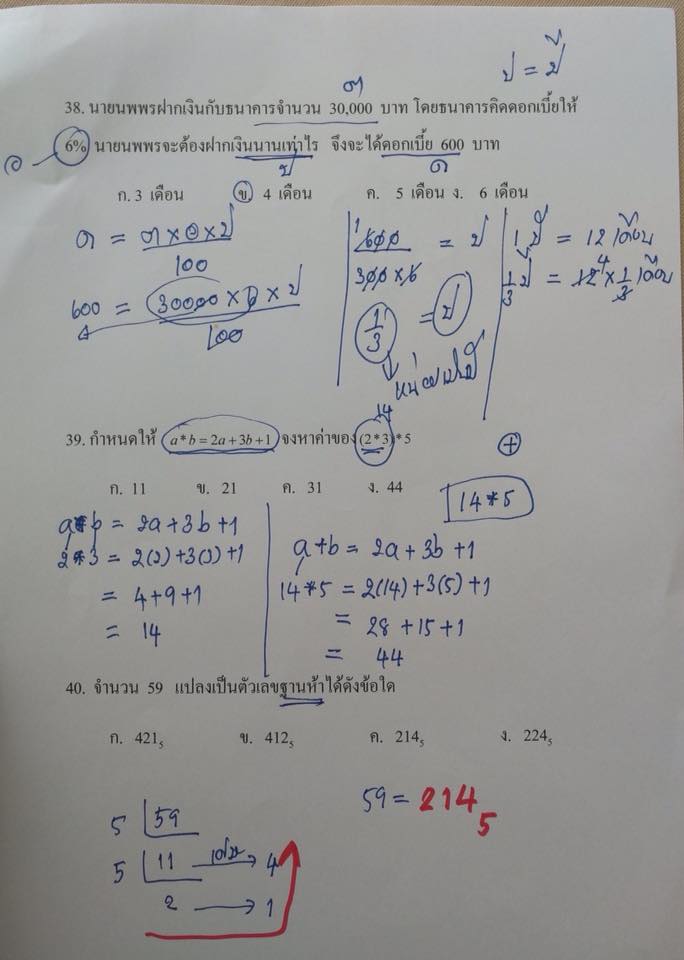 ป = ปี
ต
38. นายนพพรฝากเงินกับธนาคารจำนวน 30,000 บาท โดยธนาคารคิดดอกเบี้ยให้
อ 6% นายนพพรจะต้องฝากเงินนานเท่าไร จึงจะได้ดอกเบี้ย 600 บาท
ป ด
ก. 3 เดือน ข. 4 เดือน ค. 5 เดือน ง. 6 เดือน
ด = ต×อ×ป
100
600 = 30000 × 6 × ป
100
1 600 = ป
300 × 6
1 = ป
3
หน่วยเป็นปี
1 ปี = 12 เดือน
1/3 ปี = 12 4 × 1/3 เดือน
14
39. กำหนดให้ a * b = 2a + 3b + 1 จงหาค่าของ (2 * 3) * 5
ก. 11 ข. 21 ค. 31 ง. 44
14*5
a*b = 2a+3b+1
2*3 = 2(2)+3(3)+1
= 4+9+1
= 14
a*b = 2a+3b+1
14*5 = 2(14)+3(5)+1
= 28+15+1
= 44
40. จำนวน 59 แปลงเป็นตัวเลขฐานห้าได้ดังข้อใด
ก. 421₅ ข. 412₅ ค. 214₅ ง. 224₅
59 = 214₅
5 59
5 11 เศษ 4
2 1